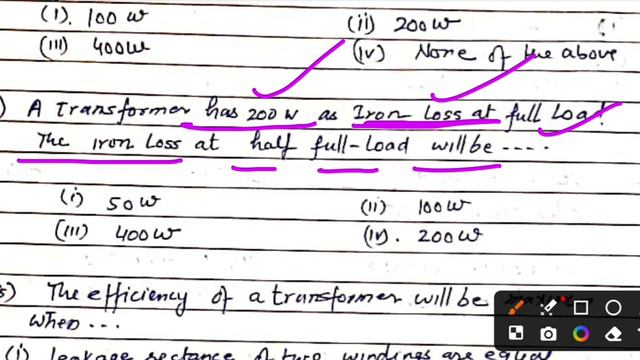 (i). 100 W (ii) 200 W
(iii) 400W (iv) None of the above
) A transformer has 200 W as Iron Loss at full Load!
The iron Loss at half full-Load will be ----.
(i) 50 W (ii) 100W
(iii) 400W (iv). 200 W
s) The efficiency of a transformer will be
when ...
(i) leakage rectance of two windings are equal